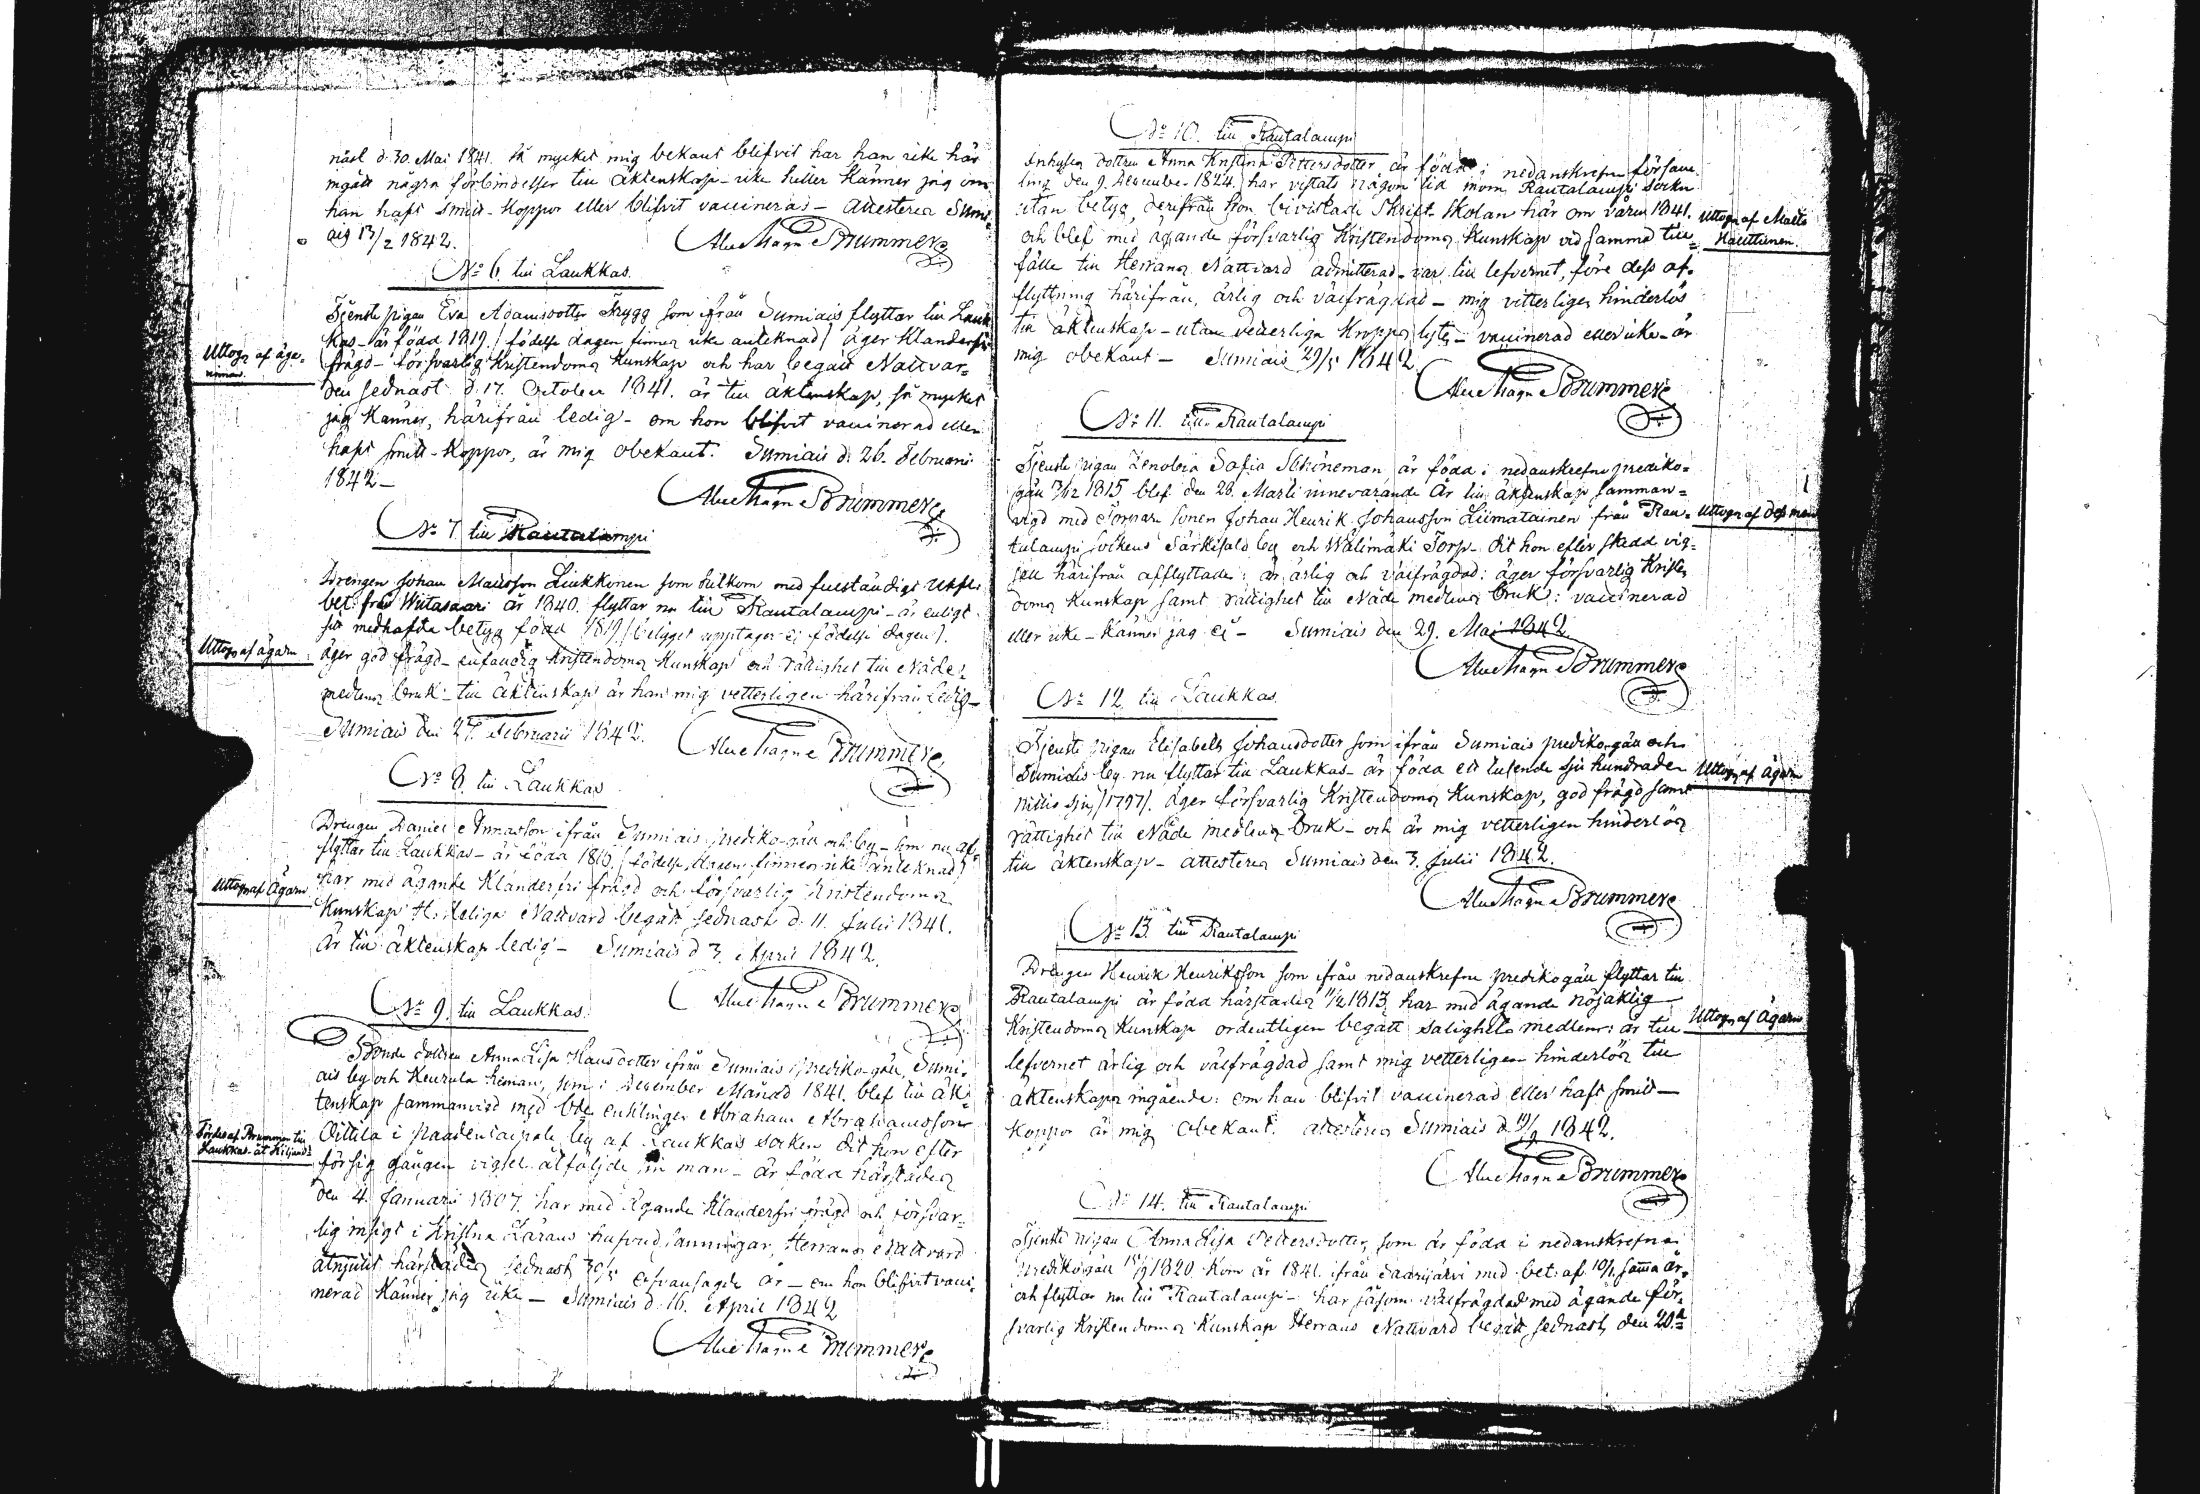 näst d. 30. Mai 1841. Så mycket mig bekant blifvit har han icke här
ingått några förbindelser till äktenskap - icke heller känner jag om
han haft Smitt-koppor eller blifvit vaccinerad - Attesterer Sumi-
ais 13/2 1842.
Brummer
No 6. till Laukkas.
Tjenste pigan Eva Adamsdotter Trygg som ifrån Sumiais flyttar till Lauk
kas - är född 1819 / födelse dagen finnes icke antecknad / äger klanderfri
Uttogs af äga-
rinnan.
frägd - försvarlig Kristendoms kunskap och har begått Nattvar-
den sednast d. 17. October 1841. är till äktenskap, så mycket
jag känner, härifrån ledig - om hon blifvit vaccinerad eller
haft Smitt-koppor, är mig obekant. Sumiais d. 26. Februarii
1842 -
Brummer
No 7. till Rautalampi
Drengen Johan Matsson Liukkonen som hitkom med fullständigt
bet. från Wiitasaari år 1840. flyttar nu till Rautalampi - är enligt
sitt medhafda betyg född 1819 / betyget upptager ej födelse dagen /.
Uttogs af ägarn
äger god frägd - enfaldig Kristendoms kunskap och rättighet till Nåde-
medlens bruk - till äktenskap är han mig vetterligen härifrån ledig -
Sumiais den 27. Februarii 1842.
Brummer
No 8. till Laukkas
Drengen Daniel Annasson ifrån Sumiais prediko-gäll och by - som nu af-
flyttar till Laukkas - är född 1816 / födelse dagen finnes icke antecknad /
Uttogs af Ägarn
har med ägande klanderfri frägd och försvarlig Kristendoms
kunskap H. Heliga Nattvard begått sednast d. 11. Julii 1841.
Är till äktenskap ledig - Sumiais d 3. April 1842.
Brummer
No 9. till Laukkas.
Bonde dottren Anna Lisa Hansdotter ifrån Sumiais prediko-gäll, Sumi-
ais by och Keurula heman, som i December Månad 1841. blef till äk-
tenskap sammanvigd med enklingen Abraham Abrahamsson
Fördes af Brummer till
Laukkas
Oittila i Paadentaipale by af Laukkas socken dit hon efter
för sig gången vigsel åtföljde sin man - är född härstädes
den 4. Januarii 1807. har med ägande klanderfri frägd och försvar-
lig insigt i Kristna Lärans hufvud sanningar, Herrans Nattvard
åtnjutit härstädes sednast 30/5 ofvansagde år - om hon blifvit vacci-
nerad känner jag icke - Sumiais d. 16. April 1842
Brummer
No 10. till Rautalampi
Inhyses dottren Anna Kristina Pettersdotter är född i nedanskrefne försam-
ling den 9. December 1824. har vistats någon tid inom Rautalampi socken
utan betyg, derifrån hon bivistade Skrift-Skolan här om våren 1841.
Uttogs af Matts
Hauttinen.
och blef med ägande försvarlig Kristendoms kunskap vid samma till-
fälle till Herrans Nattvard admitterad - var till lefvernet, före dess af-
flyttning härifrån, ärlig och välfrägdad - mig vitterligen hinderlös
till äktenskap - utan vederliga kropps lyte - vaccinerad eller icke - är
mig obekant - Sumiais 29/5 1842.
Brummer
No 11. till Rautalampi
Tjenste pigan Zenobia Sofia Schöneman är född i nedanskrefne prediko-
gäll 1815 blef den 28. Martii innevarande år till äktenskap samman-
vigd med Torpare sonen Johan Henrik Johansson Liimatainen från Rau-
Uttogs af dess man
talampi sockens Särkisalo by och Wälimäki Torp dit hon efter skedd vig-
sel härifrån afflyttade: är ärlig och välfrägdad: äger försvarlig Kristen
doms kunskap samt rättighet till Nåde medlens bruk: vaccinerad
eller icke - känner jag ej - Sumiais den 29. Mai 1842
Brummer
No 12. till Laukkas.
Tjenste pigan Elisabeth Johansdotter som ifrån Sumiais prediko-gäll och
Sumiais by nu flyttar till Laukkas - är född ett tusende sju hundrade
Uttogs af ägarn
nittio sju /1797/. äger försvarlig Kristendoms kunskap, god frägd samt
rättighet till Nåde medlens bruk - och är mig vetterligen hinderlös
till äktenskap - attesterer Sumiais den 3. Julii 1842.
Brummer
No 13. till Rautalampi
Drengen Henrik Henriksson som ifrån nedanskrefne predikogäll flyttar till
Rautalampi är född härstädes 1813 har med ägande nöjaktig
Uttogs af Ägarn
Kristendoms kunskap ordentligen begått salighets medlen: är till
lefvernet ärlig och välfrägdad samt mig vetterligen hinderlös till
äktenskaps ingående: om han blifvit vaccinerad eller haft smitt-
koppor är mig obekant. attesterer Sumiais d. 1842.
Brummer
No 14. till Rautalampi
Tjenste pigan Anna Lisa Pettersdotter, som är född i nedanskrefne
predikogäll 1820. kom år 1841. ifrån Saarijärvi med bet. af 10/1. samma år,
och flyttar nu till Rautalampi - har såsom välfrägdad med ägande för-
svarlig Kristendoms kunskap Herrans Nattvard begått sednast den 20de